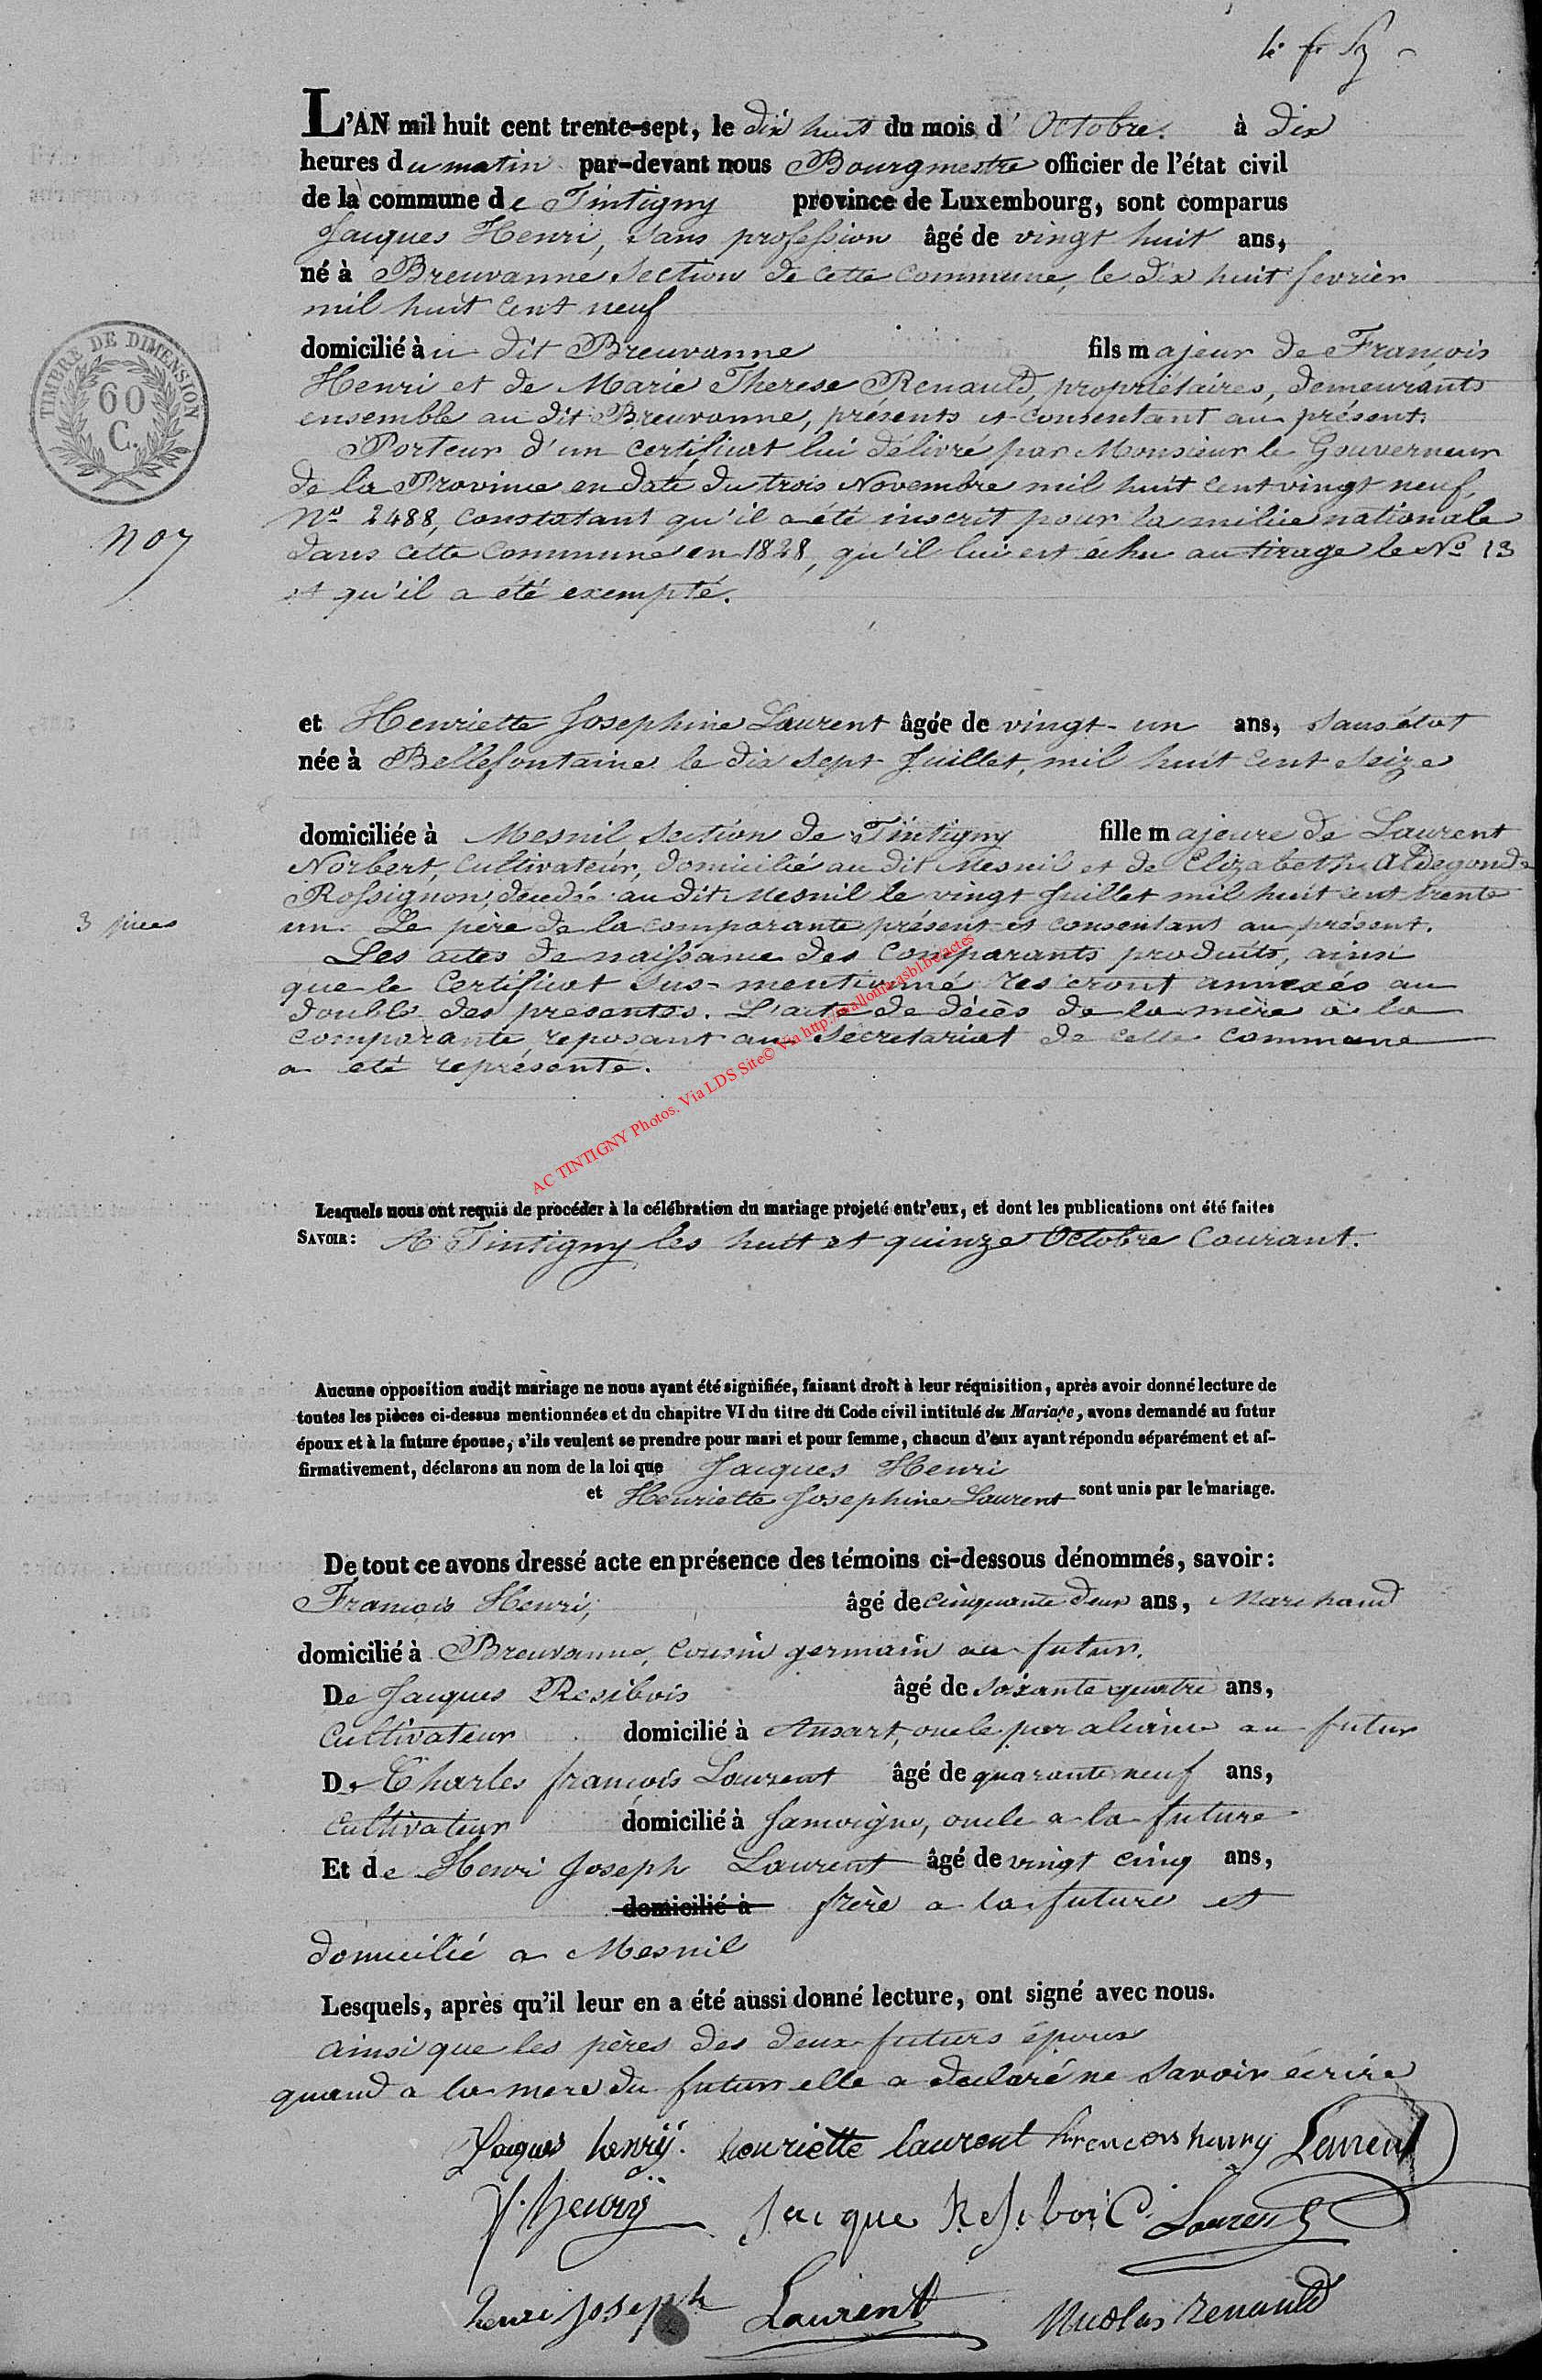 L'AN mil huit cent trente-sept, le dix huit du mois d' Octobre. à dix
heures du matin par-devant nous Bourgmestre officier de l'état civil
de la commune de Tintigny province de Luxembourg, sont comparus
Jacques Henri, sans profession âgé de vingt huit ans,
né à Breuvanne section de cette commune, le dix huit fevrier
mil huit cent neuf
domicilié à u dit Breuvanne fils majeur de François
Henri et de Marie Therese Renauld, propriétaires, demeurants
ensemble au dit Breuvanne, présents et consentant au présent.
Porteur d'un certificat lui délivré par Monsieur le Gouverneur
de la Province en date du trois Novembre mil huit cent vingt neuf,
No 2488, constatant qu'il a été inscrit pour la milice nationale
dans cette commune en 1828, qu'il lui est échu au tirage le No 13
et qu'il a été exempté.
TIMBRE DE DIMENSION
60
C.
No 7
et Henriette Josephine Laurent âgée de vingt-un ans, sans état
née à Bellefontaine le dix sept Juillet, mil huit cent seize
domiciliée à Mesnil section de Tintigny fille majeure de Laurent
Norbert, cultivateur, domicilié au dit Mesnil et de Elizabeth Aldegonde
Rossignon, decedée au dit Mesnil le vingt Juillet mil huit cent trente
un. Le père de la comparante présent et consentant au présent.
3 pieces
Les actes de naissance des comparants produits, ainsi
que le Certificat sus-mentionné resteront annexés au
double des presentes. L'acte de décès de la mère à la
comparante, reposant au secretariat de cette commune
a été représenté.
AC TINTIGNY Photos. Via LDS Site© Via http://wallonia-asbl.be/actes
Lesquels nous ont requis de procéder à la célébration du mariage projeté entr'eux, et dont les publications ont été faites
SAVOIR: A Tintigny les huit et quinze Octobre courant.
Aucune opposition audit mariage ne nous ayant été signifiée, faisant droit à leur réquisition, après avoir donné lecture de
toutes les pièces ci-dessus mentionnées et du chapitre VI du titre du Code civil intitulé du Mariage, avons demandé au futur
époux et à la future épouse, s'ils veulent se prendre pour mari et pour femme, chacun d'eux ayant répondu séparément et af-
firmativement, déclarons au nom de la loi que Jacques Henri
et Henriette Josephine Laurent sont unis par le mariage.
De tout ce avons dressé acte en présence des témoins ci-dessous dénommés, savoir:
François Henri, âgé de cinquante deux ans, Marchand
domicilié à Breuvanne, cousin germain au futur.
De Jacques Resibois âgé de soixante quatre ans,
Cultivateur domicilié à Ansart, oncle par aliance au futur
De Charles françois Laurent âgé de quarante neuf ans,
Cultivateur domicilié à Jamoigne, oncle a la future
Et de Henri Joseph Laurent âgé de vingt cinq ans,
domicilié à frère a la future et
domicilié a Mesnil
Lesquels, après qu'il leur en a été aussi donné lecture, ont signé avec nous.
ainsi que les pères des deux futurs époux
quand a la mere du futur elle a déclaré ne savoir écrire
Jaques henrÿ. henriette laurent francois henry Laurent
f. henrÿ Jacque Resiboi C. Laurent
henri Joseph Laurent Nicolas Renauld